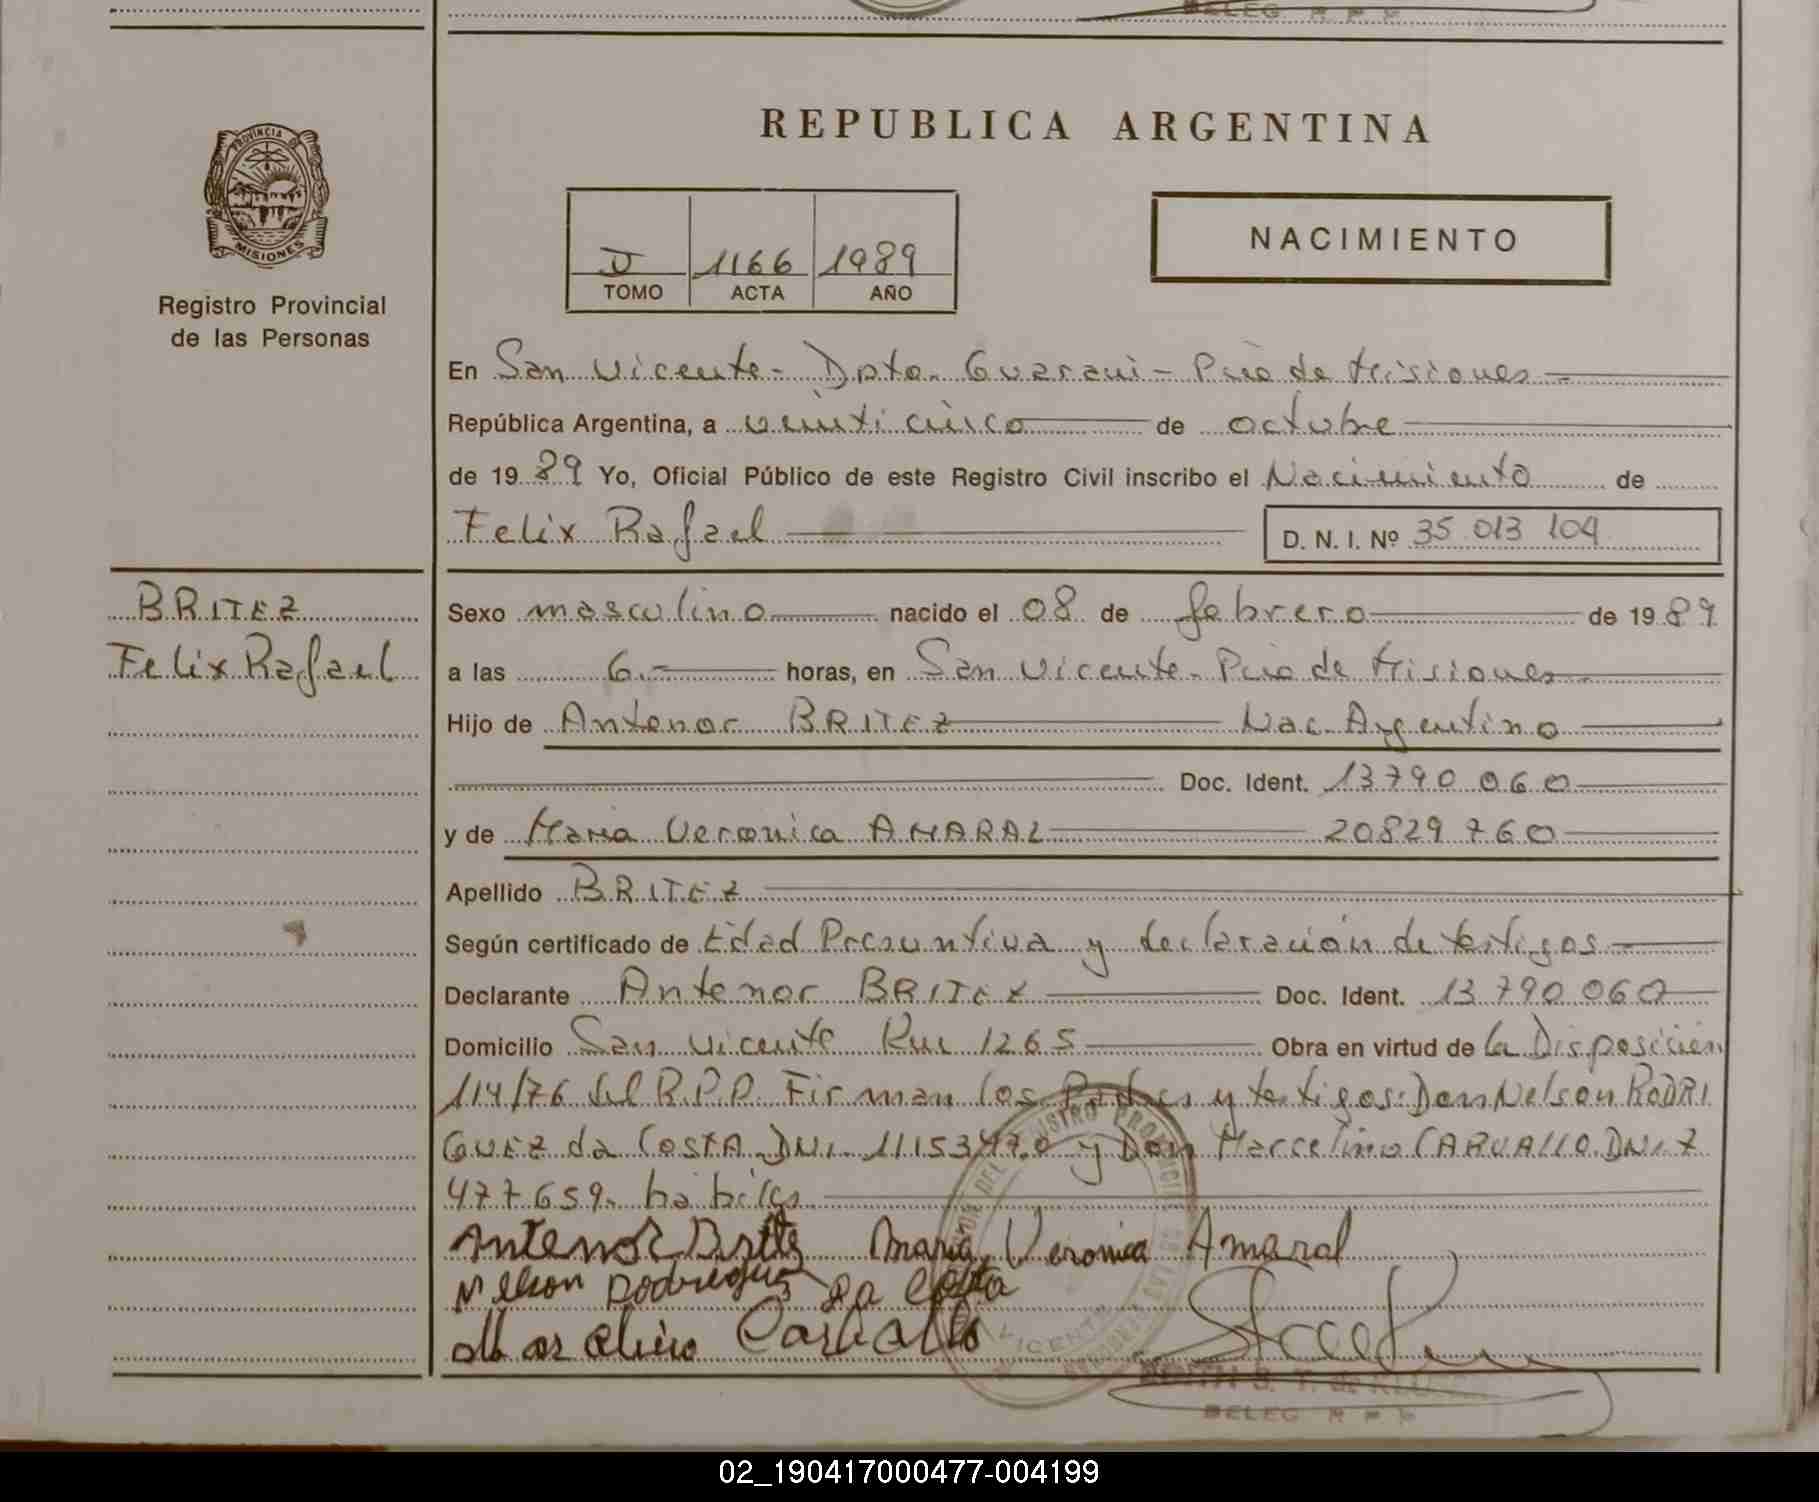 DELEG. R P P
REPUBLICA ARGENTINA
PROVINCIA
MISIONES
Registro Provincial
de las Personas
1166 1989
TOMO ACTA AÑO
NACIMIENTO
En San Vicente - Dpto. Guarani - Pcia de Misiones
República Argentina, a veinticinco de octubre
de 19 89 Yo, Oficial Público de este Registro Civil inscribo el Nacimiento de
Felix Rafael D. N. I. Nº 35 013 104
BRITEZ
Felix Rafael
Sexo masculino nacido el 08 de febrero de 19 89
a las 6.- horas, en San Vicente - Pcia de Misiones
Hijo de Antenor BRITEZ Nac. Argentino
Doc. Ident. 13790 060
y de Maria Veronica AMARAL 20829 760
Apellido BRITEZ
Según certificado de Edad Presuntiva y declaración de testigos
Declarante Antenor BRITEZ Doc. Ident. 13 790 060
Domicilio San Vicente Km 1265 Obra en virtud de la Disposición
114/76 del R.P.P. Firman los Padres y testigos: Don Nelson RODRI
GUEZ da COSTA. DNI. 11153470 y Don Marcelino CARVALLO. DNI. 7
477.659. habiles
Antenor Britez Maria Veronica Amaral
Nelson Rodriguez Da Costa
Marcelino Carballo
DELEG R P P
02_190417000477-004199